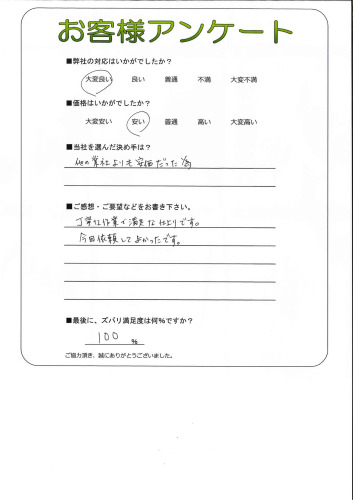 お客様アンケート
■弊社の対応はいかがでしたか？
大変良い 良い 普通 不満 大変不満
■価格はいかがでしたか？
大変安い 安い 普通 高い 大変高い
■当社を選んだ決め手は？
他の業社よりも安価だった為
■ご感想・ご要望などをお書き下さい。
丁寧な作業で満足な仕上りです。
今回依頼してよかったです。
■最後に、ズバリ満足度は何％ですか？
100 ％
ご協力頂き、誠にありがとうございました。